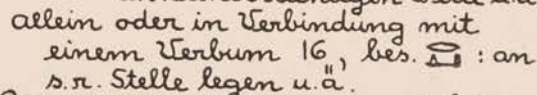 allein oder in Verbindung mit
einem Verbum 16, bes. : an
s. r. Stelle legen u. ä.